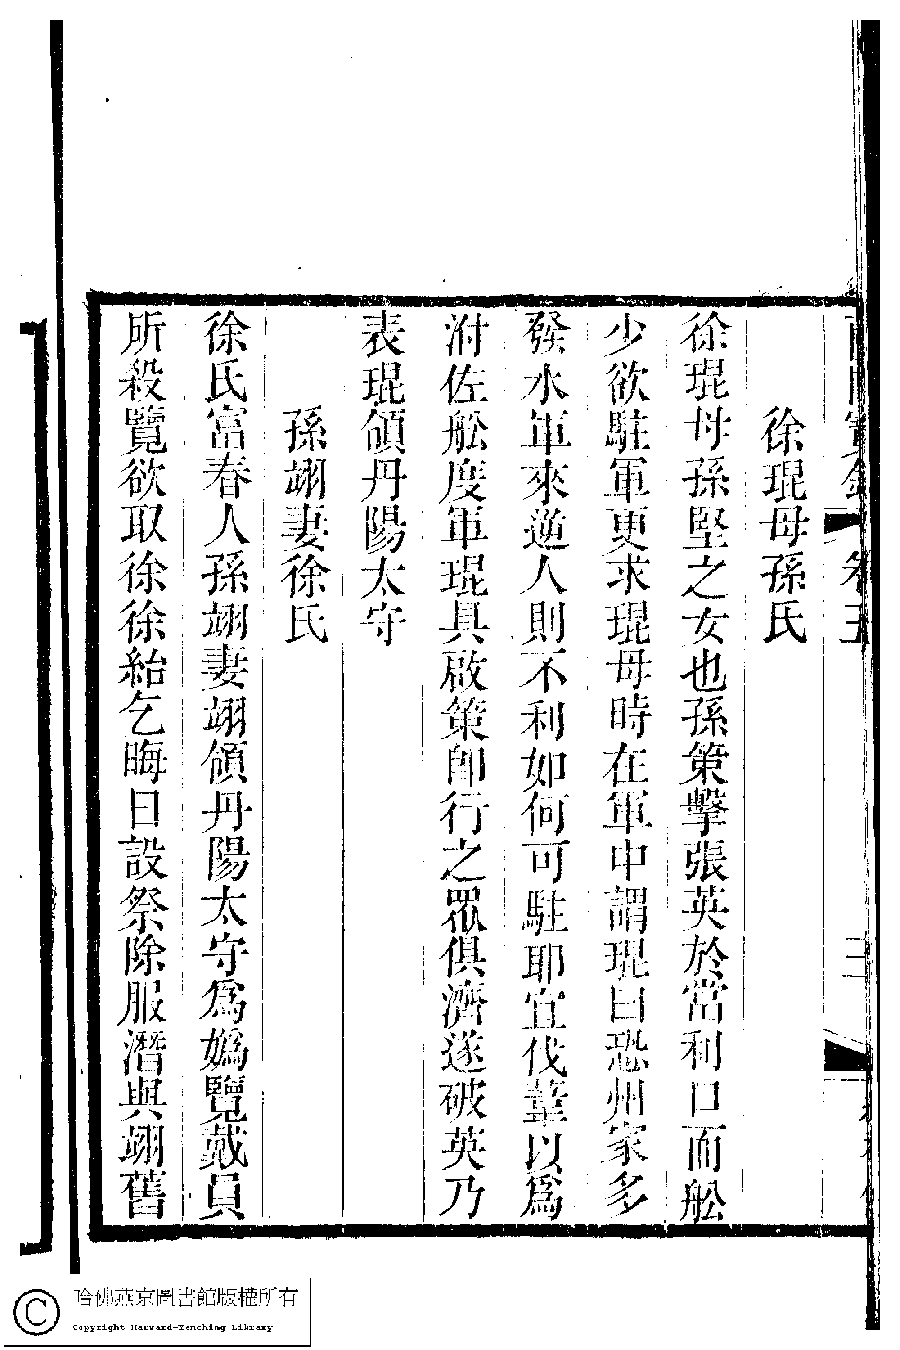 卷五
三
徐琨母孫氏
徐琨母孫堅之女也孫策擊張英於當利口而舩
少欲駐軍更求琨母時在軍中謂琨曰恐州家多
發水軍來逆人則不利如何可駐耶宜伐葦以爲
泭佐舩度軍琨具啟策卽行之眾俱濟遂破英乃
表琨領丹陽太守
孫翊妻徐氏
徐氏富春人孫翊妻翊領丹陽太守爲嬀覽戴員
所殺覽欲取徐徐紿乞晦日設祭除服潛與翊舊
哈佛燕京圖書館版權所有
Copyright Harvard-Yenching Library